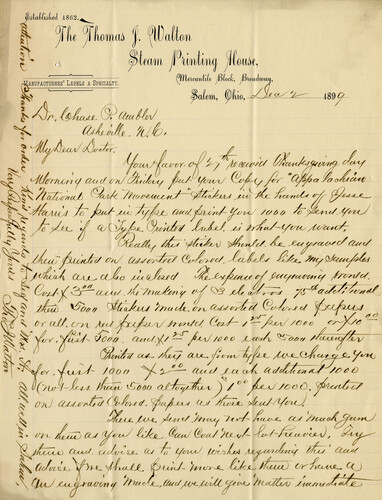 Established 1862.
The Thomas J. Walton
Steam Printing House,
Mercantile Block, Broadway,
Manufacturers' Labels a Specialty.
Salem, Ohio, Dec 2 1899
Dr. Chase P. Ambler
Asheville. N.C.
My Dear Doctor.
Your favor of 27th received Thanksgiving day
Morning and on Friday put your Copy for "Appalachian
National Park Movement" Stickers in the hands of Jesse
Harris to put in type and print you 1000 to send you
to see if a Type Printed label is what you want.
Really this sticker should be engraved and
then printed on assorted Colored labels like my samples
which are also inclosed The expense of engraving would
Cost $3.00 and the making of 3 electros 75¢ additional
then 5000 Stickers made on assorted Colored papers
or all on red paper would Cost 1.25 per 1000 or $10.00
for first 5000, and $1.25 per 1000 each 5000 thereafter
Printed as they are from type we Charge you
for first 1000 $2.00 and each additional 1000
(not less than 5000 altogether) 1.00 per 1000, printed
on assorted Colored papers as those sent you.
These we send may not have as much gum
on them as you like Can Coat next lot heavier. Try
these and advise as to your wishes regarding this and
advise if we shall print more like these or have a
an engraving made, and we will give matter immediate
attention. Thanks for order. Kind regards to Self and Mrs. A. All well in Salem,
Very Respectfully Yours
Thos Walton